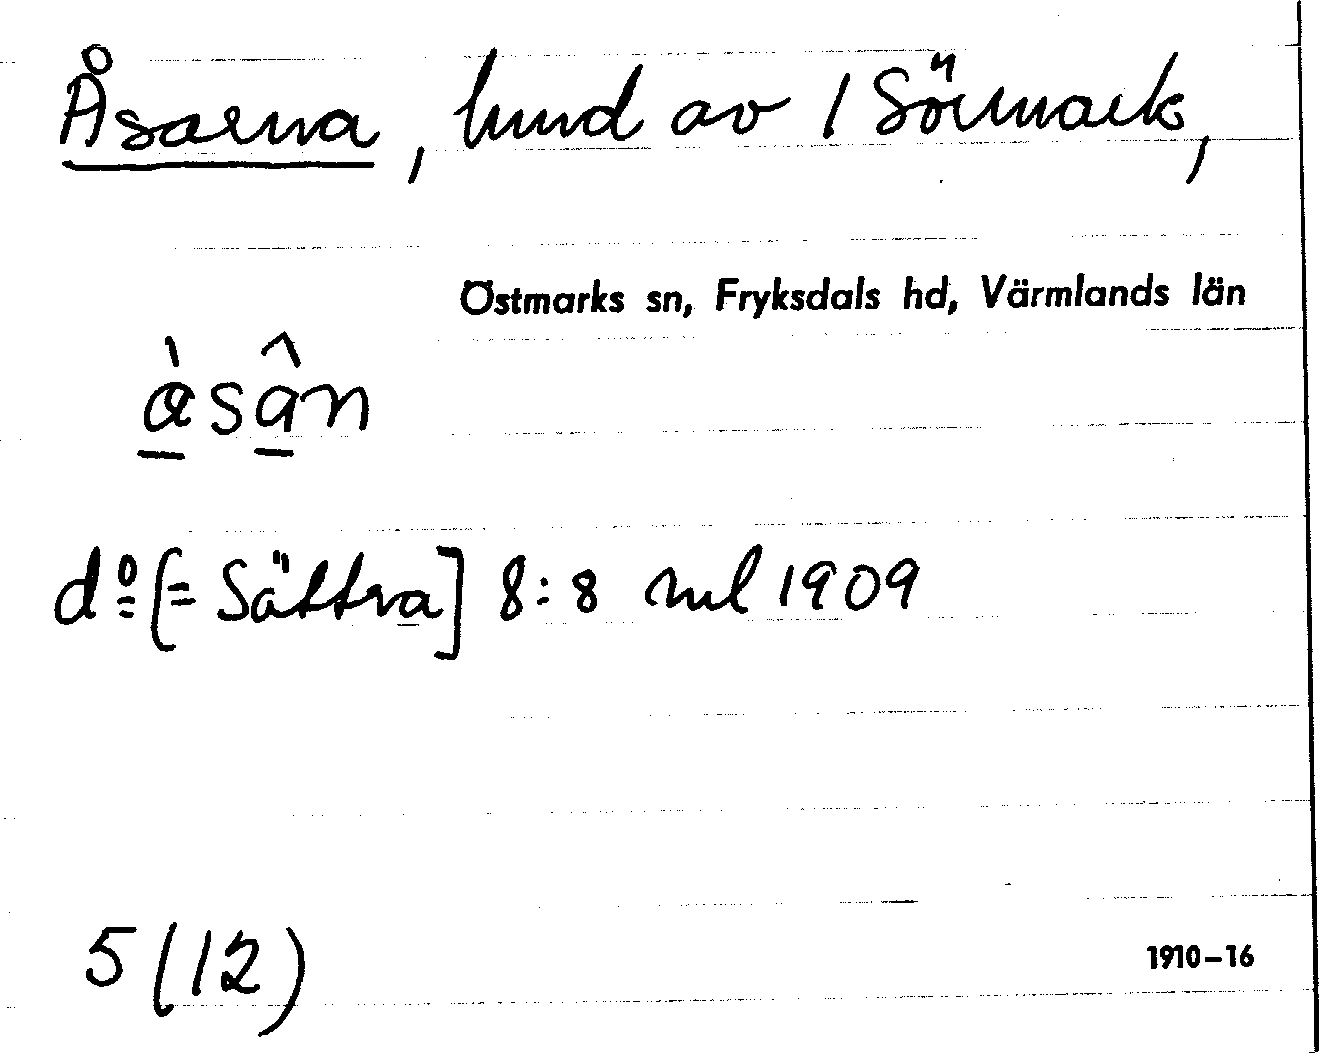 Åsarna, hmd av 1 Sörmark,
Östmarks sn, Fryksdals hd, Värmlands län
àsân
do [= Sättra] 8:8 1909
5 (12)
1910–16